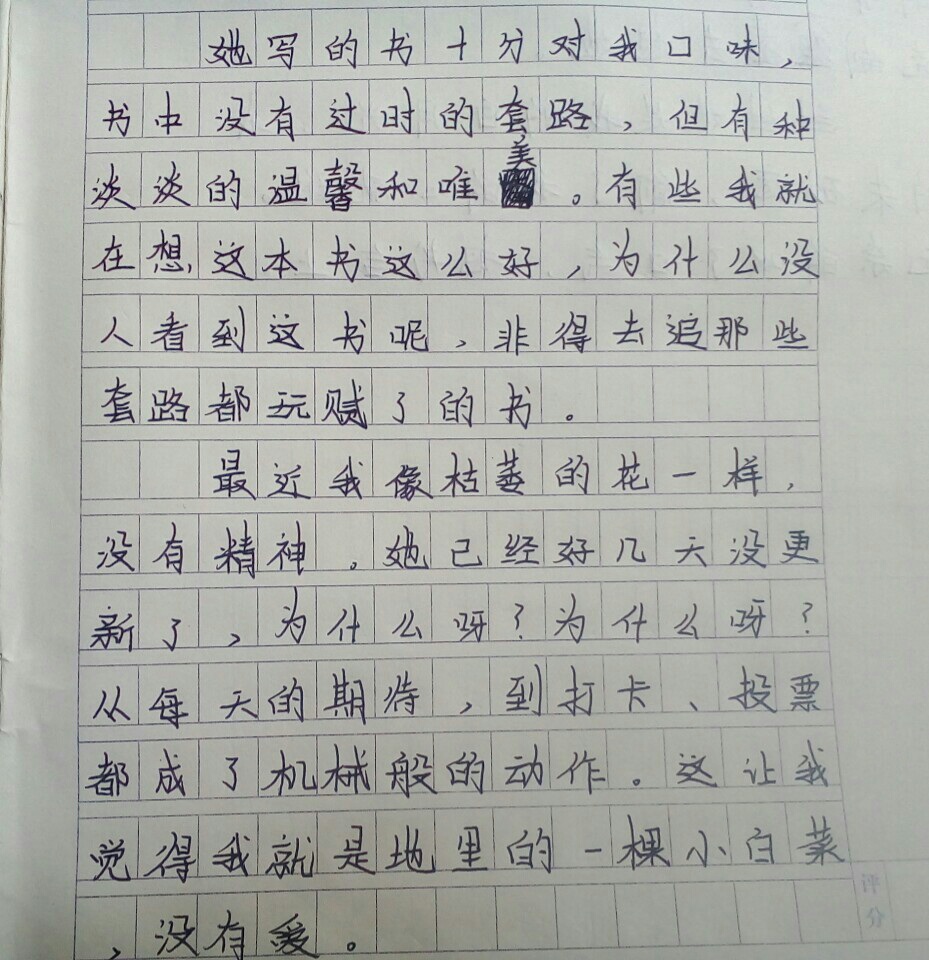 她写的书十分对我口味，
书中没有过时的套路，但有种
淡淡的温馨和唯美。有些我就
在想，这本书这么好，为什么没
人看到这书呢，非得去追那些
套路都玩赋了的书。
最近我像枯萎的花一样，
没有精神。她已经好几天没更
新了，为什么呀？为什么呀？
从每天的期待，到打卡、投票
都成了机械般的动作。这让我
觉得我就是地里的一棵小白菜
，没有爱。
评分